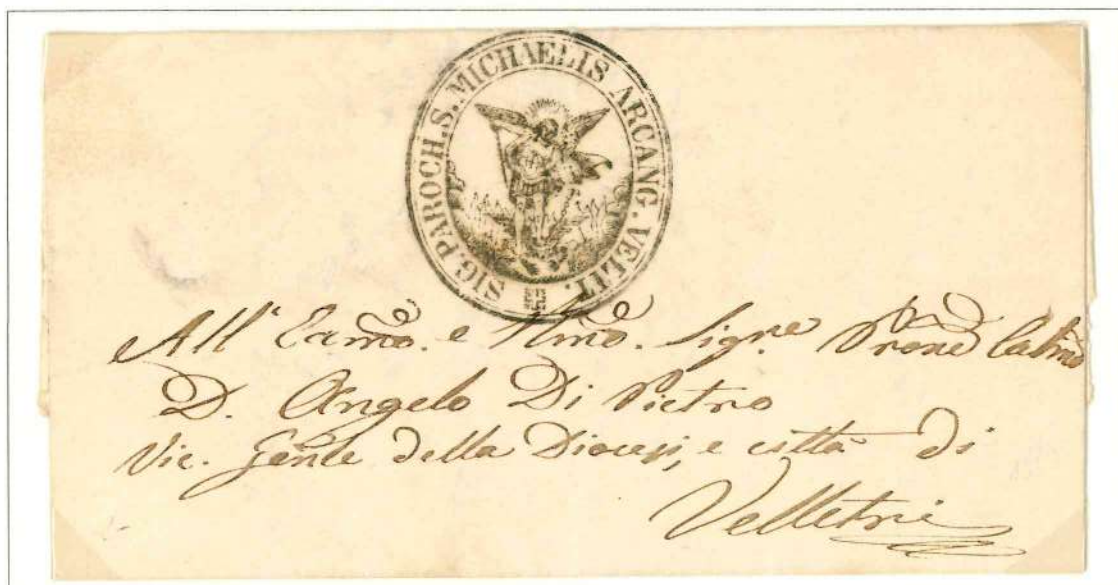 SIG. PAROCH. S. MICHAELIS ARCANG. VELIT.
All' e Sigre.
D. Angelo Di Pietro
Vic. Gen̄le della Diocesi, e città di
Velletri